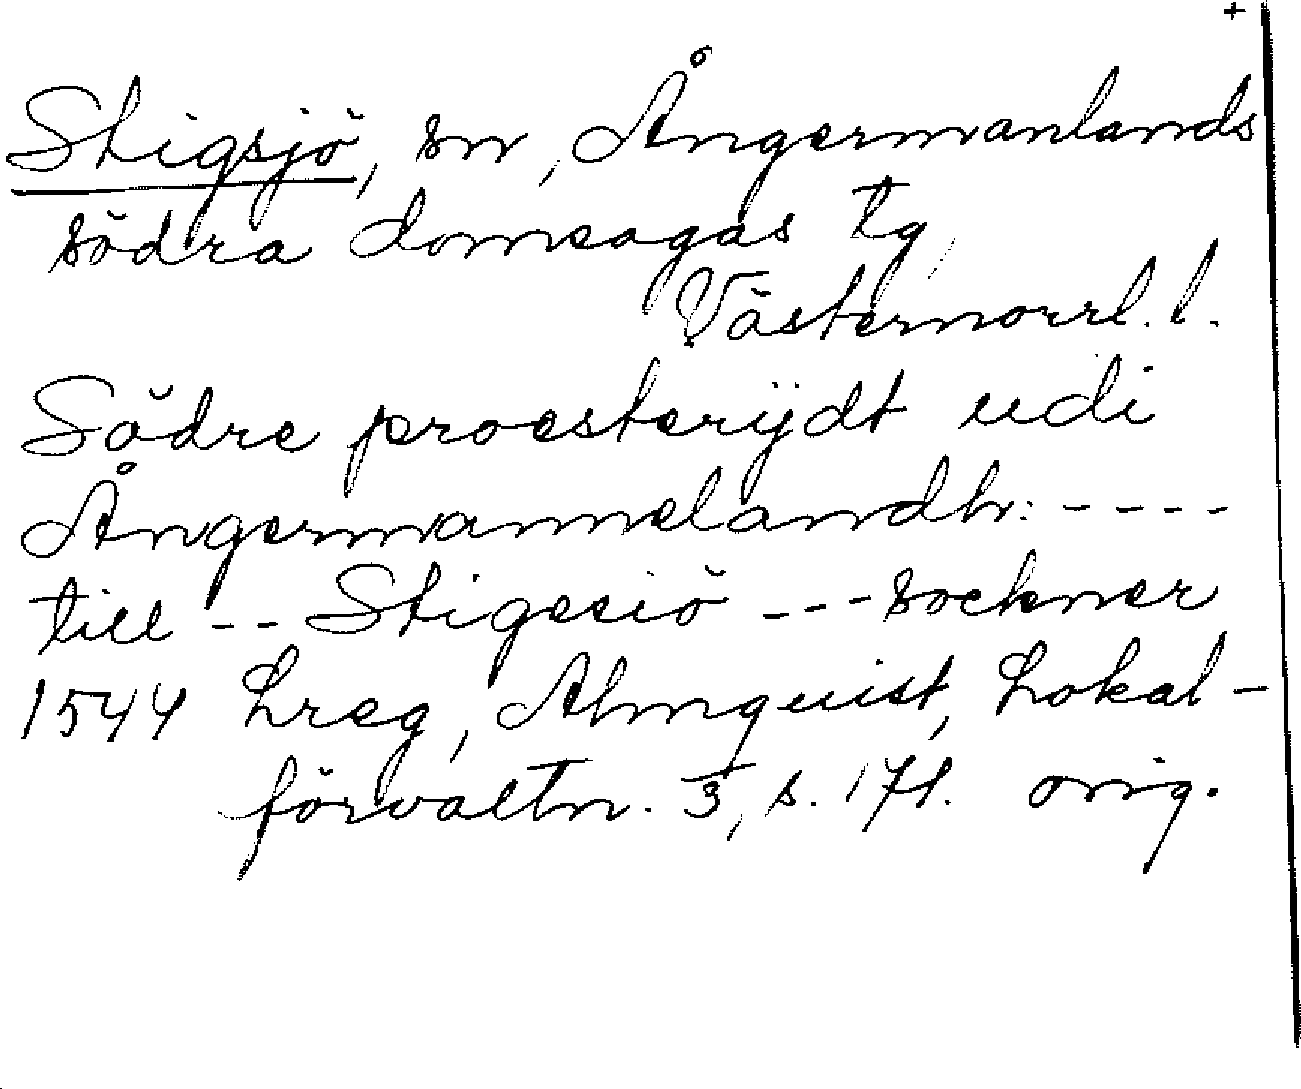 +
Stigsjö, sn, Ångermanlands
södra domsagas tg,
Västernorrl. l.
Södre proesterijdt udi
Ångermannelandh: ----
till -- Stigesiö --- sockner
1544 Lreg, Almquist, Lokal-
förvaltn. 3, s. 171. orig.